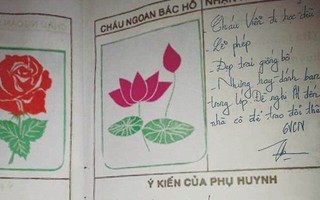 CHÁU NGOAN BÁC HỒ
NHẬN
Cháu Văn đi học đều
- Lễ phép
- Đẹp trai giống bố
- Nhưng hay đánh bạn
trong lớp. Đề nghị PH đến
nhà cô để trao đổi thêm
GVCN
Ý KIẾN CỦA PHỤ HUYNH